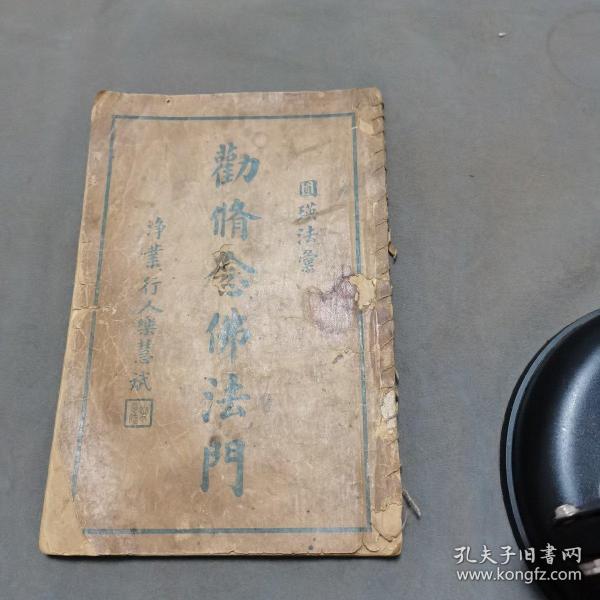 圓瑛法彙
勸脩念佛法門
淨業行人樂慧斌
孔夫子旧书网
www.kongfz.com